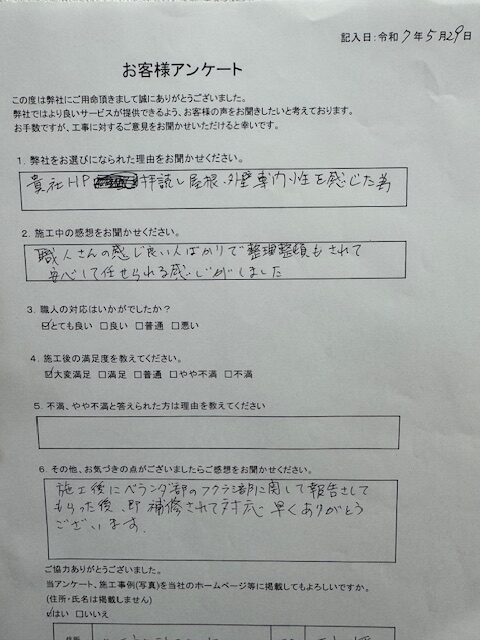 記入日:令和 7 年 5 月 29 日
お客様アンケート
この度は弊社にご用命頂きまして誠にありがとうございました。
弊社ではより良いサービスが提供できるよう、お客様の声をお聞きしたいと考えております。
お手数ですが、工事に対するご意見をお聞かせいただけると幸いです。
1. 弊社をお選びになられた理由をお聞かせください。
貴社HP 拝読し屋根、外壁専門性を感じた為
2. 施工中の感想をお聞かせください。
職人さんの感じ良い人ばかりで整理整頓もされて
安心して任せられる感じがしました
3. 職人の対応はいかがでしたか?
☑とても良い □良い □普通 □悪い
4. 施工後の満足度を教えてください。
☑大変満足 □満足 □普通 □やや不満 □不満
5. 不満、やや不満と答えられた方は理由を教えてください
6. その他、お気づきの点がございましたらご感想をお聞かせください。
施工後にベランダ部のフクラミ剤に関して報告をして
もらった後、即 補修されて対応 早くありがとう
ございます。
ご協力ありがとうございました。
当アンケート、施工事例(写真)を当社のホームページ等に掲載してもよろしいですか。
(住所・氏名は掲載しません)
☑はい □いいえ